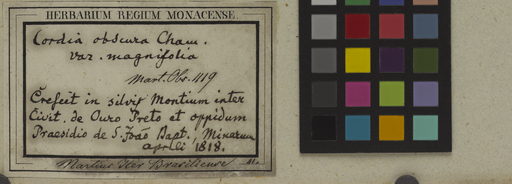 HERBARIUM REGIUM MONACENSE.
Cordia obscura Cham.
var. magnifolia
Mart. Obs. 419
Crescit in silvis Montium inter
Civit. de Ouro Preto et oppidum
Praesidio de S. João Bapt., Minarum
aprili 1818.
Martius Iter Brasiliense